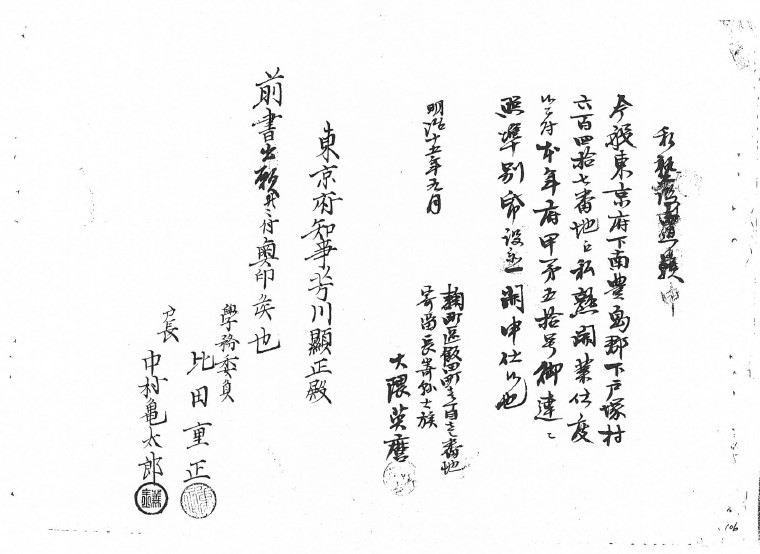 私塾設置願
今般東京府下南豊島郡下戸塚村
六百四拾七番地ニ私塾開業仕度
候ニ付本年府甲第五拾号御達ニ
照準別帋設立開申仕候也
明治十五年九月
麹町区飯田町壱丁目壱番地
寄留長崎縣士族
大隈英麿
東京府知事芳川顯正殿
前書出願ニ付奥印候也
學務委員
比田重正
戸長
中村亀太郎
106